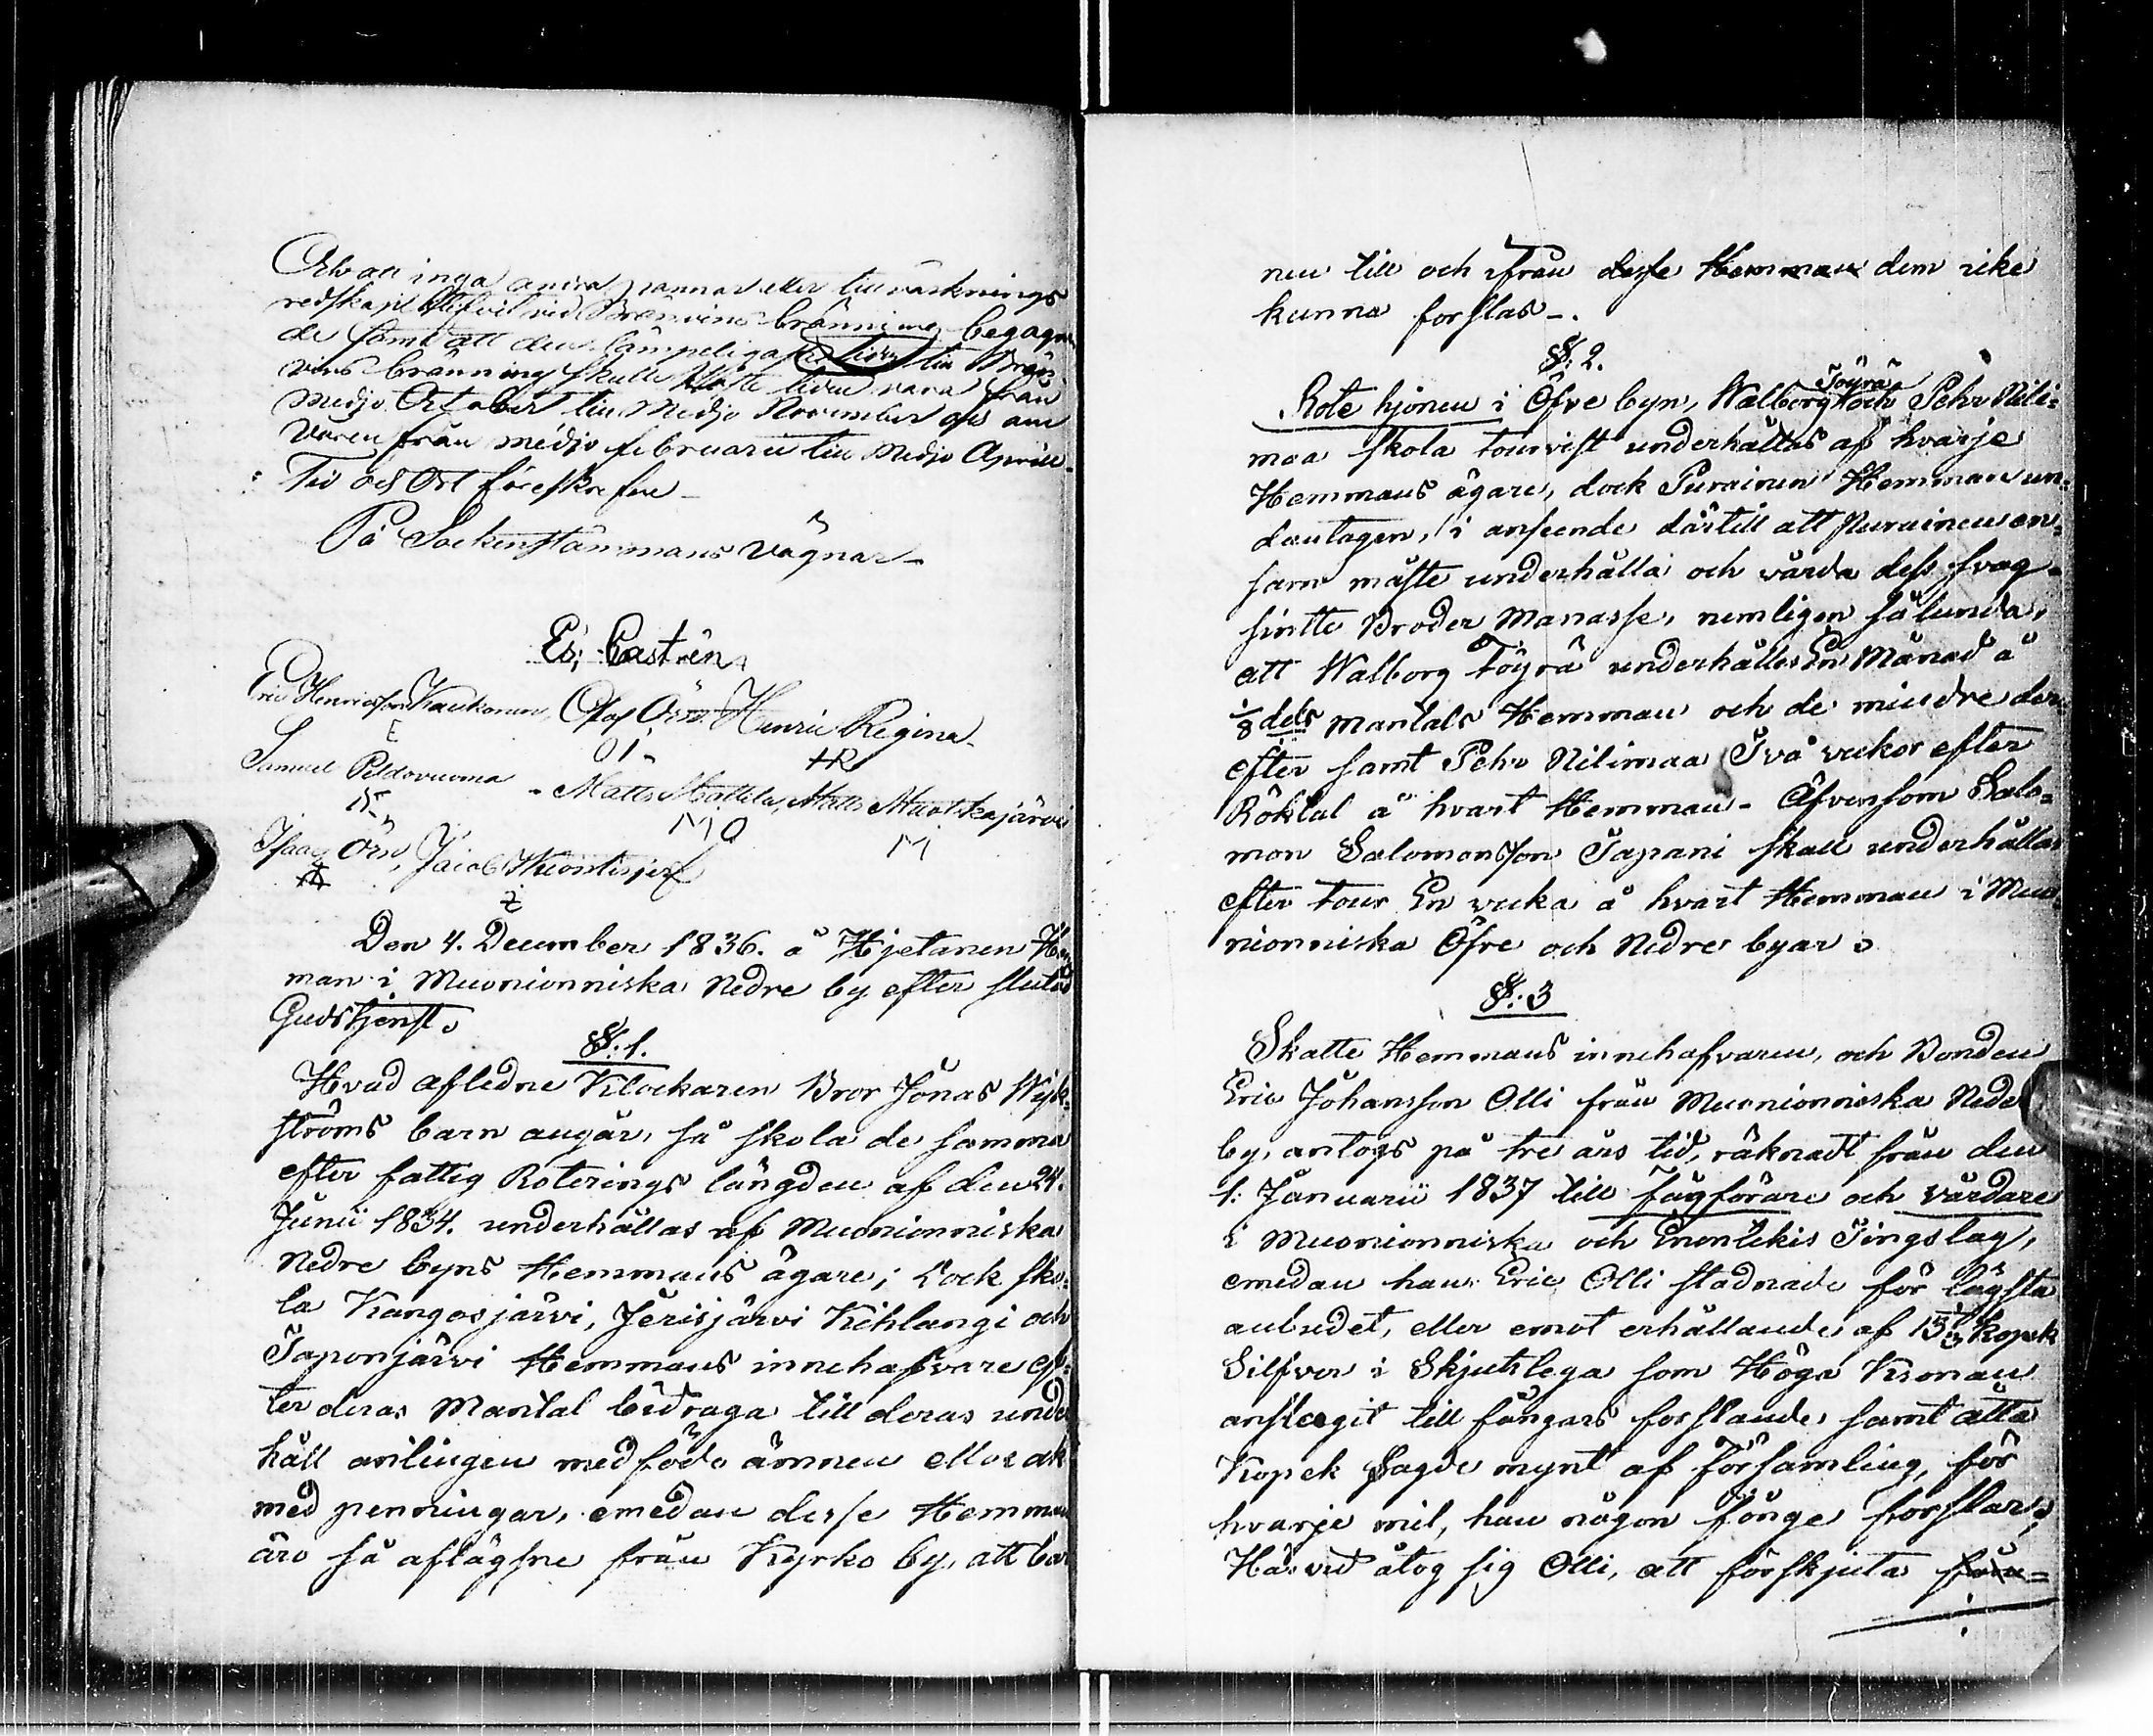 Och att inga andra pannor eller tillverknings
redskap vid Brännvins bränning begagna
de samt att den lämpeligaste tiden till Brän
vins bränning skulle vara från
Medjo October till Medjo November och om
våren från medjo februarii till Medjo Aprill.
Tid och Ort föreskrefne
På Sockenstämmans vägnar
Es: Castrén
Eric Henricsson Kaukonen, Olof Örn. Henric Regina
E OÖ HR
Samuel Peldovuoma - Matts Mattila, Matts Muotkajärvi
MO M
Isaac Örn, Jacob Kuontisjerf
Den 4. December 1836. å Hjetanen Hem
man i Muonionniska Nedre by efter slutad
Gudstjenst.
§: 1.
Hvad aflidne Klockaren Bror Jonas Wik-
ströms barn angår, så skola de samma
efter fattig Roterings längden af den 24.
Junii 1834. underhållas af Muonionniska
Nedre byns Hemmans ägare; Dock sko-
la Kangosjärvi, Jerisjärvi Kihlangi och
Taponjärvi Hemmans innehafvare ef-
ter deras Mantal bidraga till deras under
håll antingen med födo ämnen eller ock
med penningar, emedan desse Hemman
äro så aflägsne från Kyrko by, att bar
nen till och ifrån desse Hemman dem icke
kunna forslas -.
§: 2.
Töyrä
Rote hjonen i Öfve byn, Walborg och Pehr Nili-
maa skola tourvist underhållas af hvarje
Hemmans ägare, dock Purainen Hemman un-
dantagen, i anseende därtill att Purainen en-
sam måste underhålla och vårda dess svag-
sintte Broder Manasse, nemligen sålunda,
att Walborg Töyrä underhålles En Månad å
1/8 dels mantals Hemman och de mindre der-
efter samt Pehr Nilimaa Två veckor efter
Röktal å hvart Hemman - Äfvensom Salo-
mon Salomonsson Tapani skall underhållas
efter tour En vecka å hvart Hemman i Muo
nionniska Öfre och Nedre byar.
§: 3
Skatte Hemmans innehafvaren, och Bonden
Eric Johansson Olli från Muonionniska Nedre
by, antogs på tre års tid, räknadt från den
1: Januarii 1837 till fågförare och vårdare
i Muonionniska och Enontekis Tingslag,
emedan han Eric Olli stadnade för lägsta
anbudet, eller emot erhållande af 15 1/3 Kopek
Silfver i Skjutslega som Höga Kronan
anslagit till fångars forslande samt åtta
Kopek Sagde mynt af Församling, för
hvarje mil, han någon fånge forslar;
Härvid åtog sig Olli, att förskjuta från=